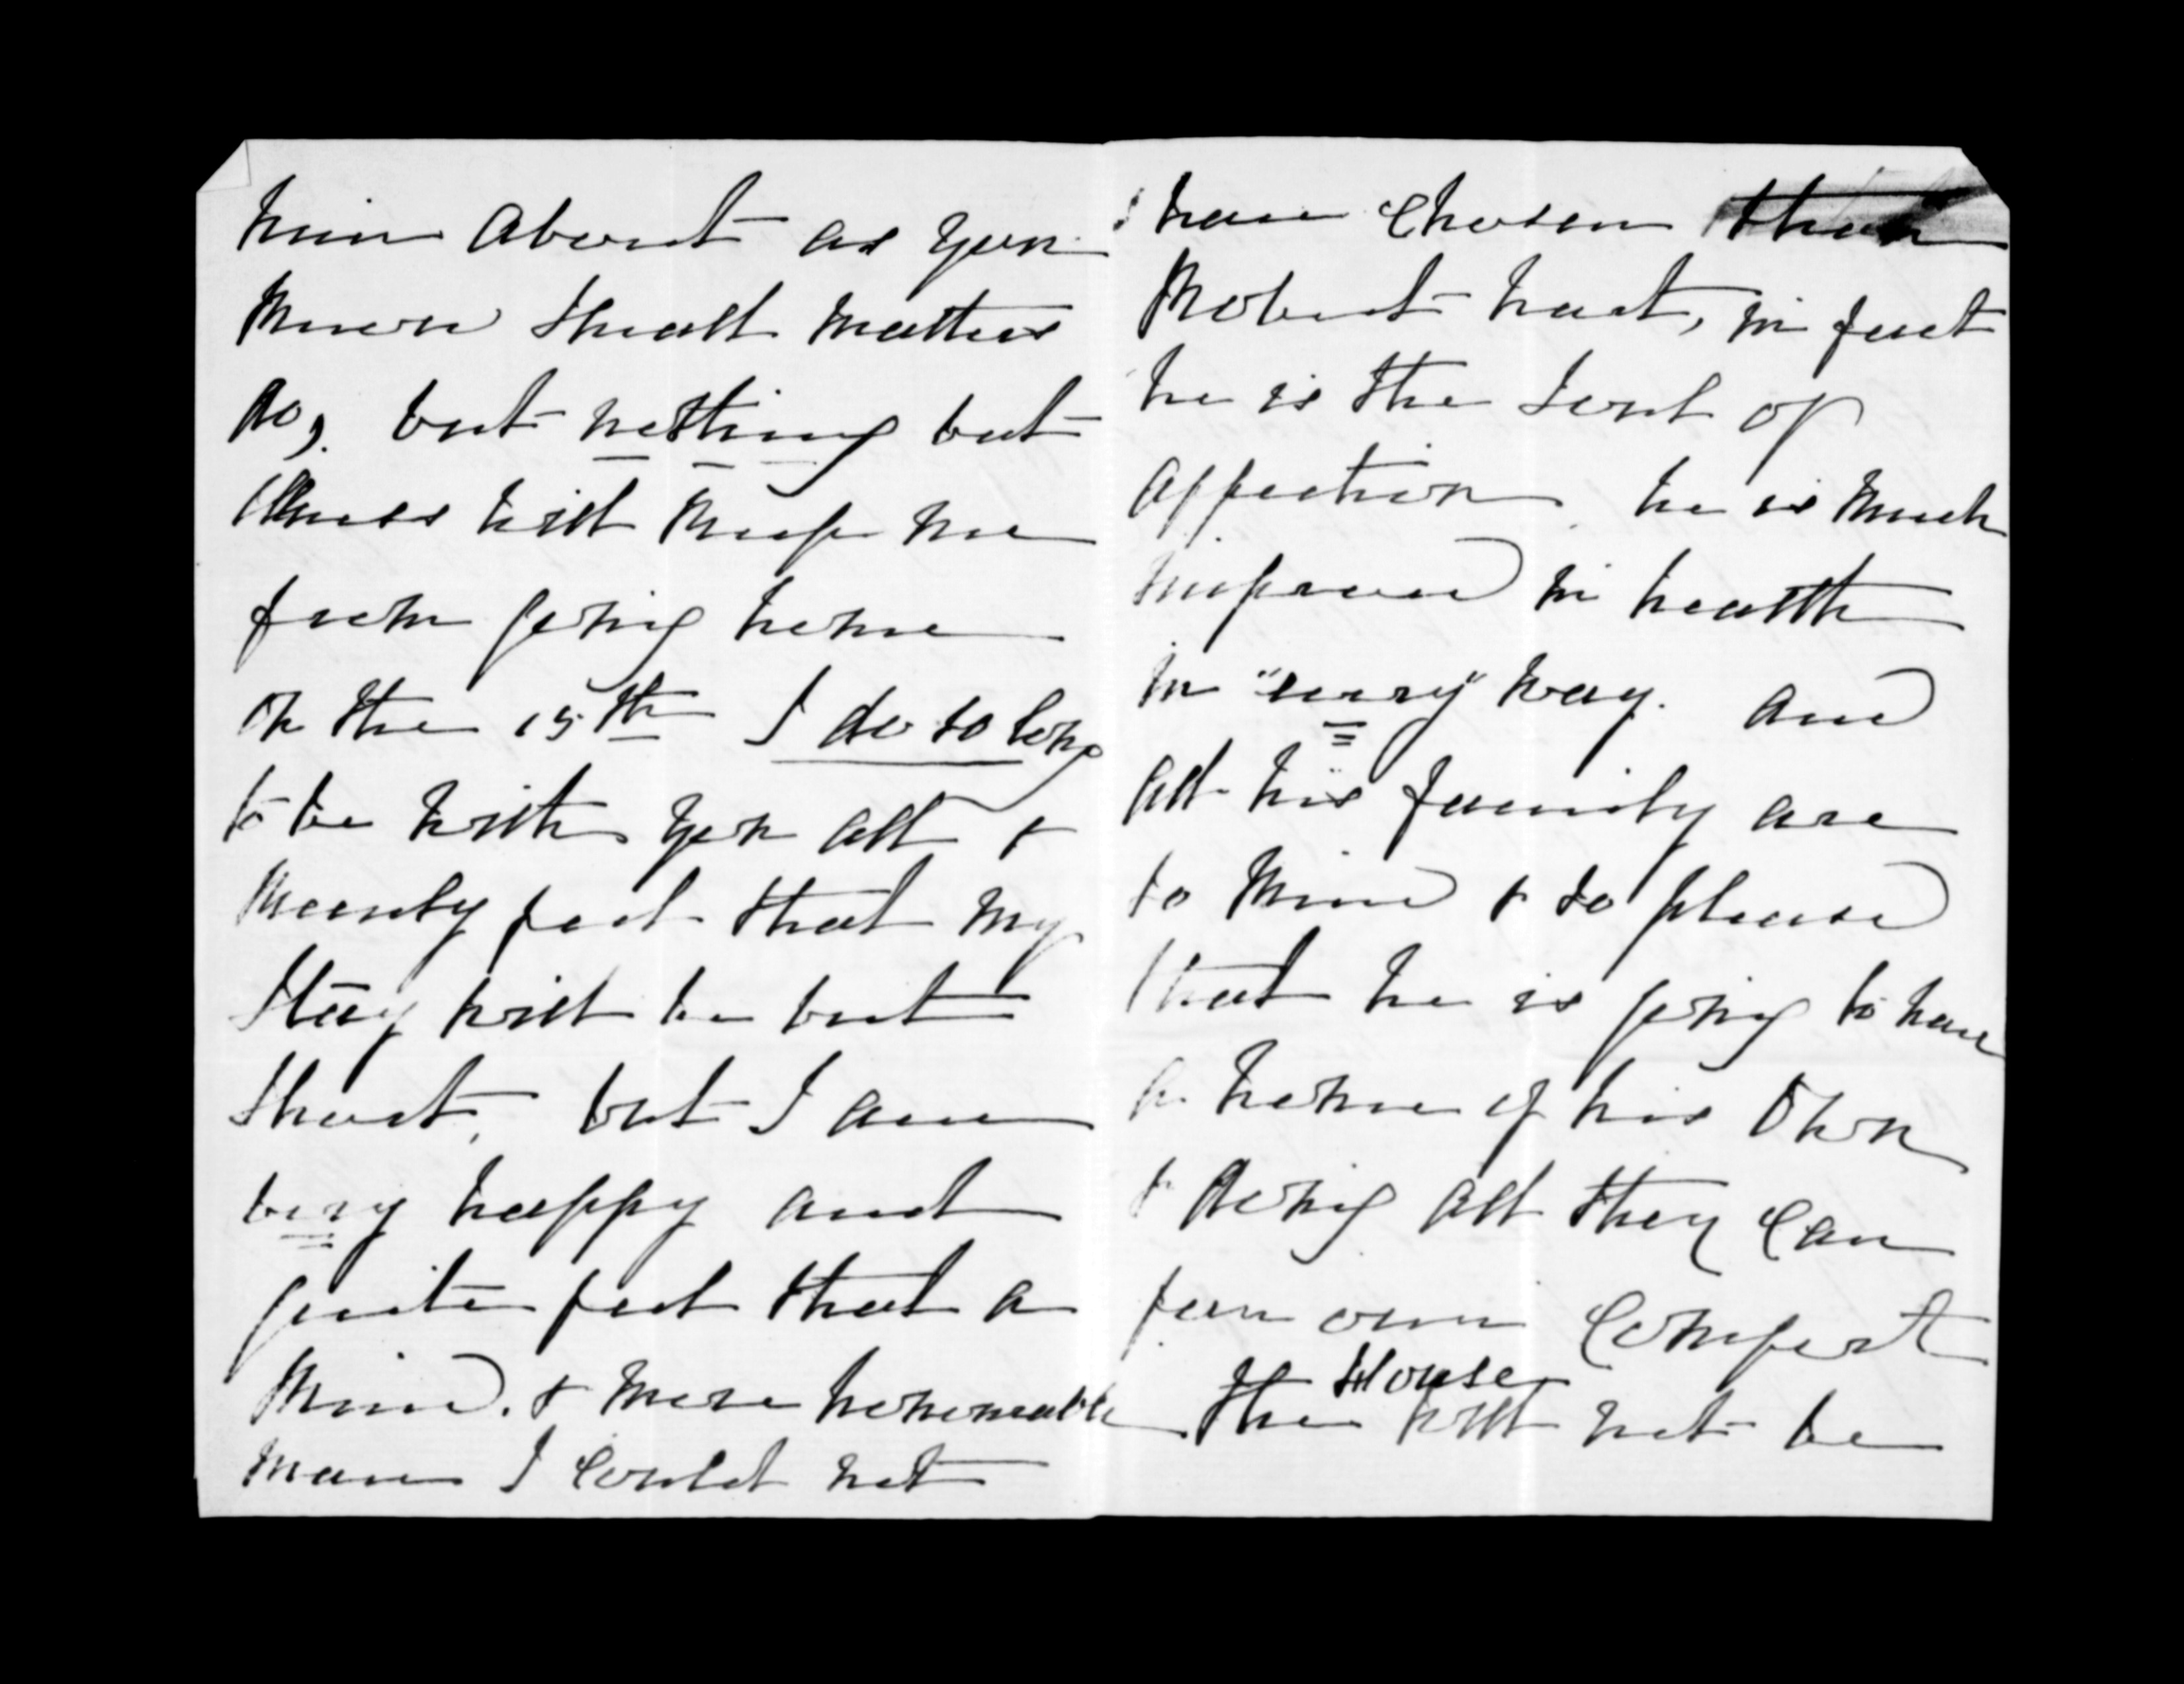 him about as you
know small matters
do, but nothing but
illness will keep me
from going home
on the 15th I do so long
to be with you all &
merely feel that my
stay will be but
short, but I am
very happy and
quite feel that a
kind. & more honourable
man I could not
have chosen than
Robert Hart, in fact
he is the soul of
affection he is much
improved in health
in "every" way. and
all his family are
so kind & so pleased
that he is going to have
a home of his own
& doing all they can
for our comfort
House
The will not be